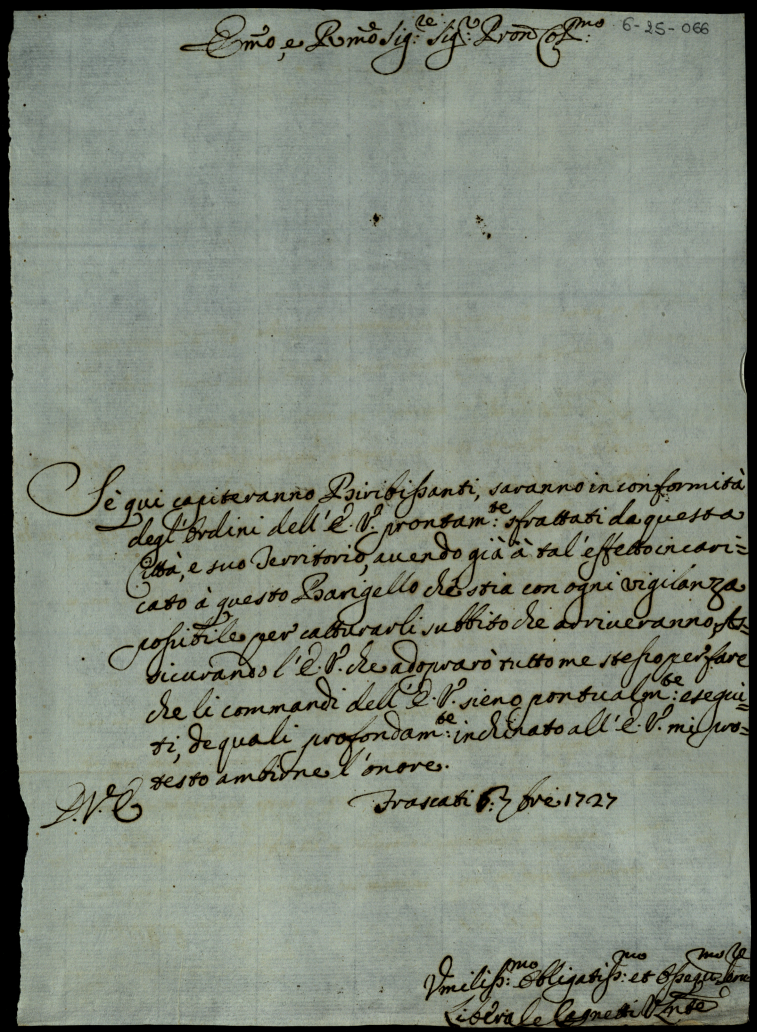 Em̃o, e Rm̃o Sig.re Sig.r Pron Col.mo
6-25-066
Sè qui capiteranno Biribissanti, saranno in conformità
degl'Ordini dell'E. V. prontam.te sfrattati da questa
Città, e suo Territorio, auendo già à tal'effetto incari=
cato à questo Barigello che stia con ogni vigilanza
possibile per catturarli subbito che arriueranno, As=
sicurando l'E. V. che adoprarò tutto me stesso per fare
che li commandi dell'E. V. sieno pontualm.te esegui=
ti, de quali profondam.te inchinato all'E. V. mi pro=
testo ambirne l'onore.
D. V. E
Frascati 6: 7bre 1727
Vmiliss.mo Obligatiss.mo et Ossequ.mo Seru.re
Liberale Cagnetti